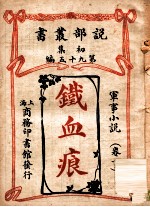 說部叢書
初集
第九十五編
軍事小說
鐵血痕
上海商務印書館發行